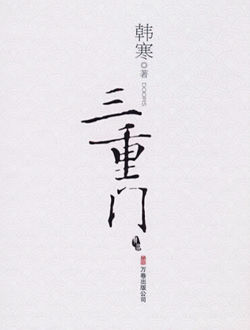 韩寒
著
DOORS
三重门
万卷出版公司